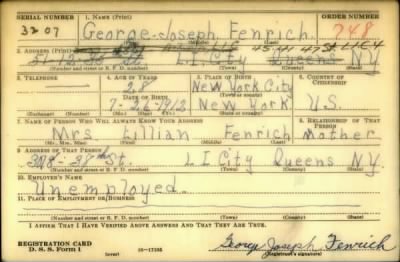 SERIAL NUMBER 1. NAME (Print) ORDER NUMBER
3207 George Joseph Fenrich. 748
2. ADDRESS (Print) 45-41 47 St L.I.C 4
St L.I. City Queens NY
(Number and street or R. F. D. number) (Town) (County) (State)
3. TELEPHONE 4. AGE IN YEARS 5. PLACE OF BIRTH 6. COUNTRY OF CITIZENSHIP
28 New York City
DATE OF BIRTH
7-26-1912 New York U.S.
(Exchange) (Number) (Mo.) (Day) (Yr.) (State or country)
7. NAME OF PERSON WHO WILL ALWAYS KNOW YOUR ADDRESS 8. RELATIONSHIP OF THAT PERSON
Mrs Lillian Fenrich Mother
(Mr., Mrs., Miss) (First) (Middle) (Last)
9. ADDRESS OF THAT PERSON
St. L.I City Queens NY.
(Number and street or R. F. D. number) (Town) (County) (State)
10. EMPLOYER'S NAME
Unemployed.
11. PLACE OF EMPLOYMENT OR BUSINESS
(Number and street or R. F. D. number) (Town) (County) (State)
I AFFIRM THAT I HAVE VERIFIED ABOVE ANSWERS AND THAT THEY ARE TRUE.
REGISTRATION CARD
D. S. S. Form 1 (over) 16-17105 George Joseph Fenrich
(Registrant's signature)